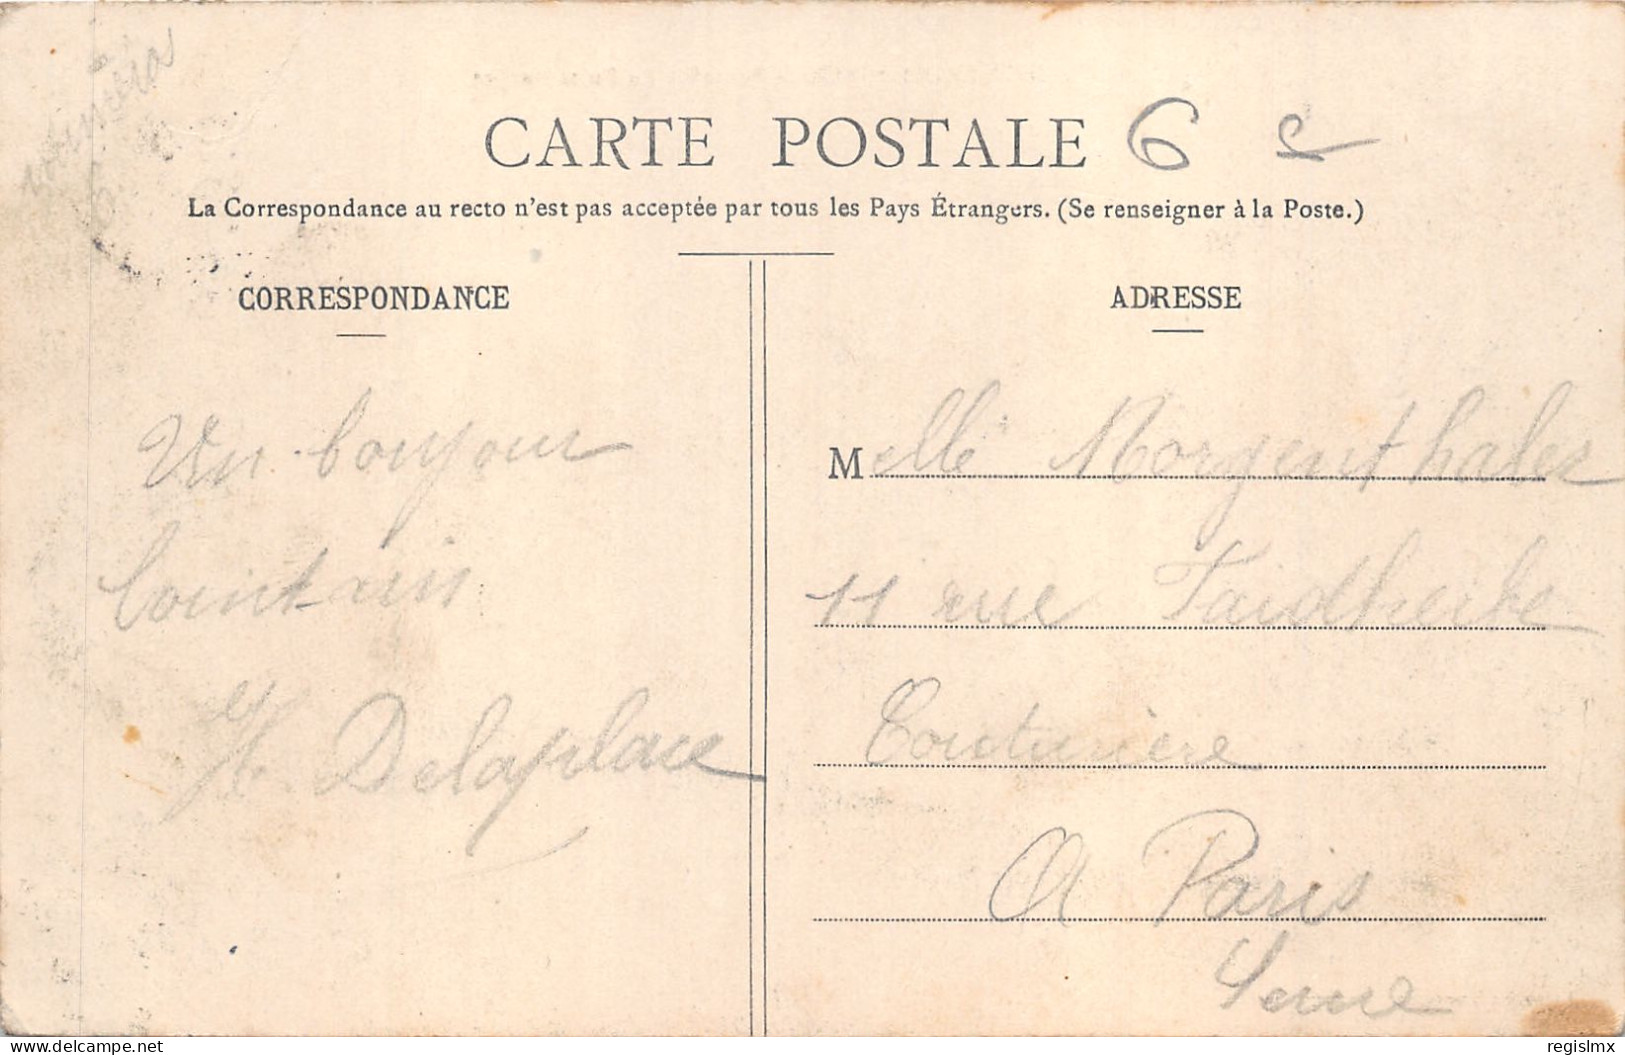 CARTE POSTALE 6
La Correspondance au recto n'est pas acceptée par tous les Pays Étrangers. (Se renseigner à la Poste.)
CORRESPONDANCE
Un bonjour
lointain
H. Delaplace
ADRESSE
Melle Morgenthaler
11 rue Faidherbe
Couturière
A Paris
Seine
delcampe.net
regislmx